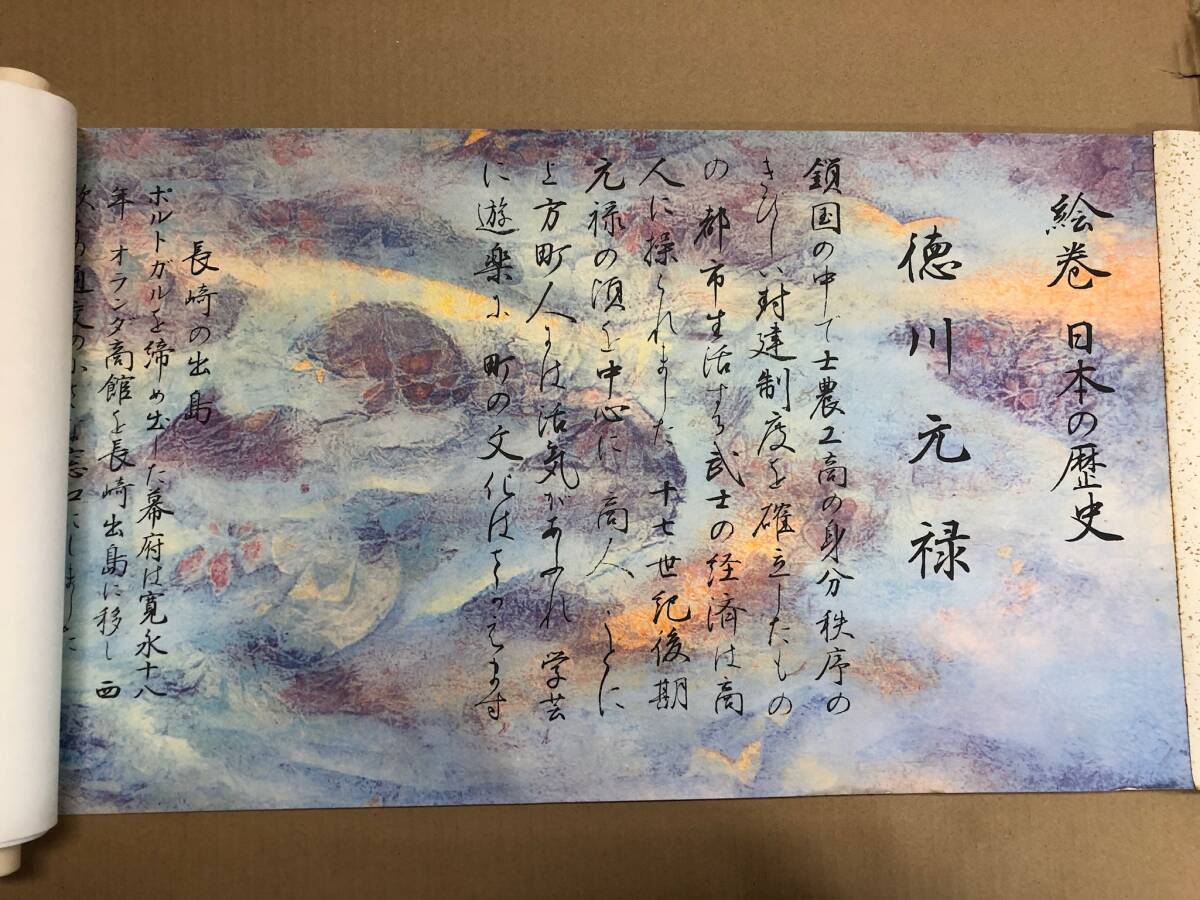 絵巻 日本の歴史
徳川元禄
鎖国の中で士農工商の身分秩序の
きびしい封建制度を確立したもの
の 都市生活する武士の経済は商
人に操られました 十七世紀後期
元禄の頃を中心に 商人 とくに
上方町人には活気があふれ 学芸
に遊楽に 町の文化はさかえます
長崎の出島
ポルトガルを締め出した幕府は寛永十八
年 オランダ商館を長崎出島に移し 西
欧への通交の小さな窓口にしました